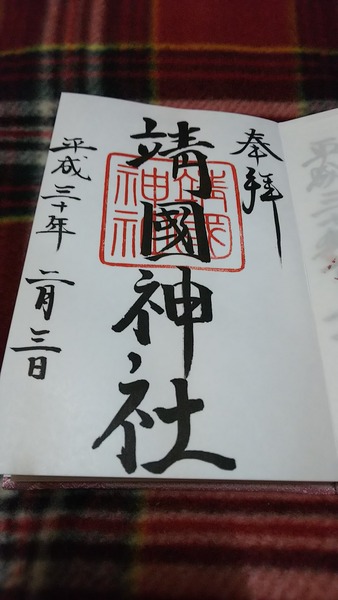 奉拝
靖國神社
靖國
神社
平成三十年二月三日